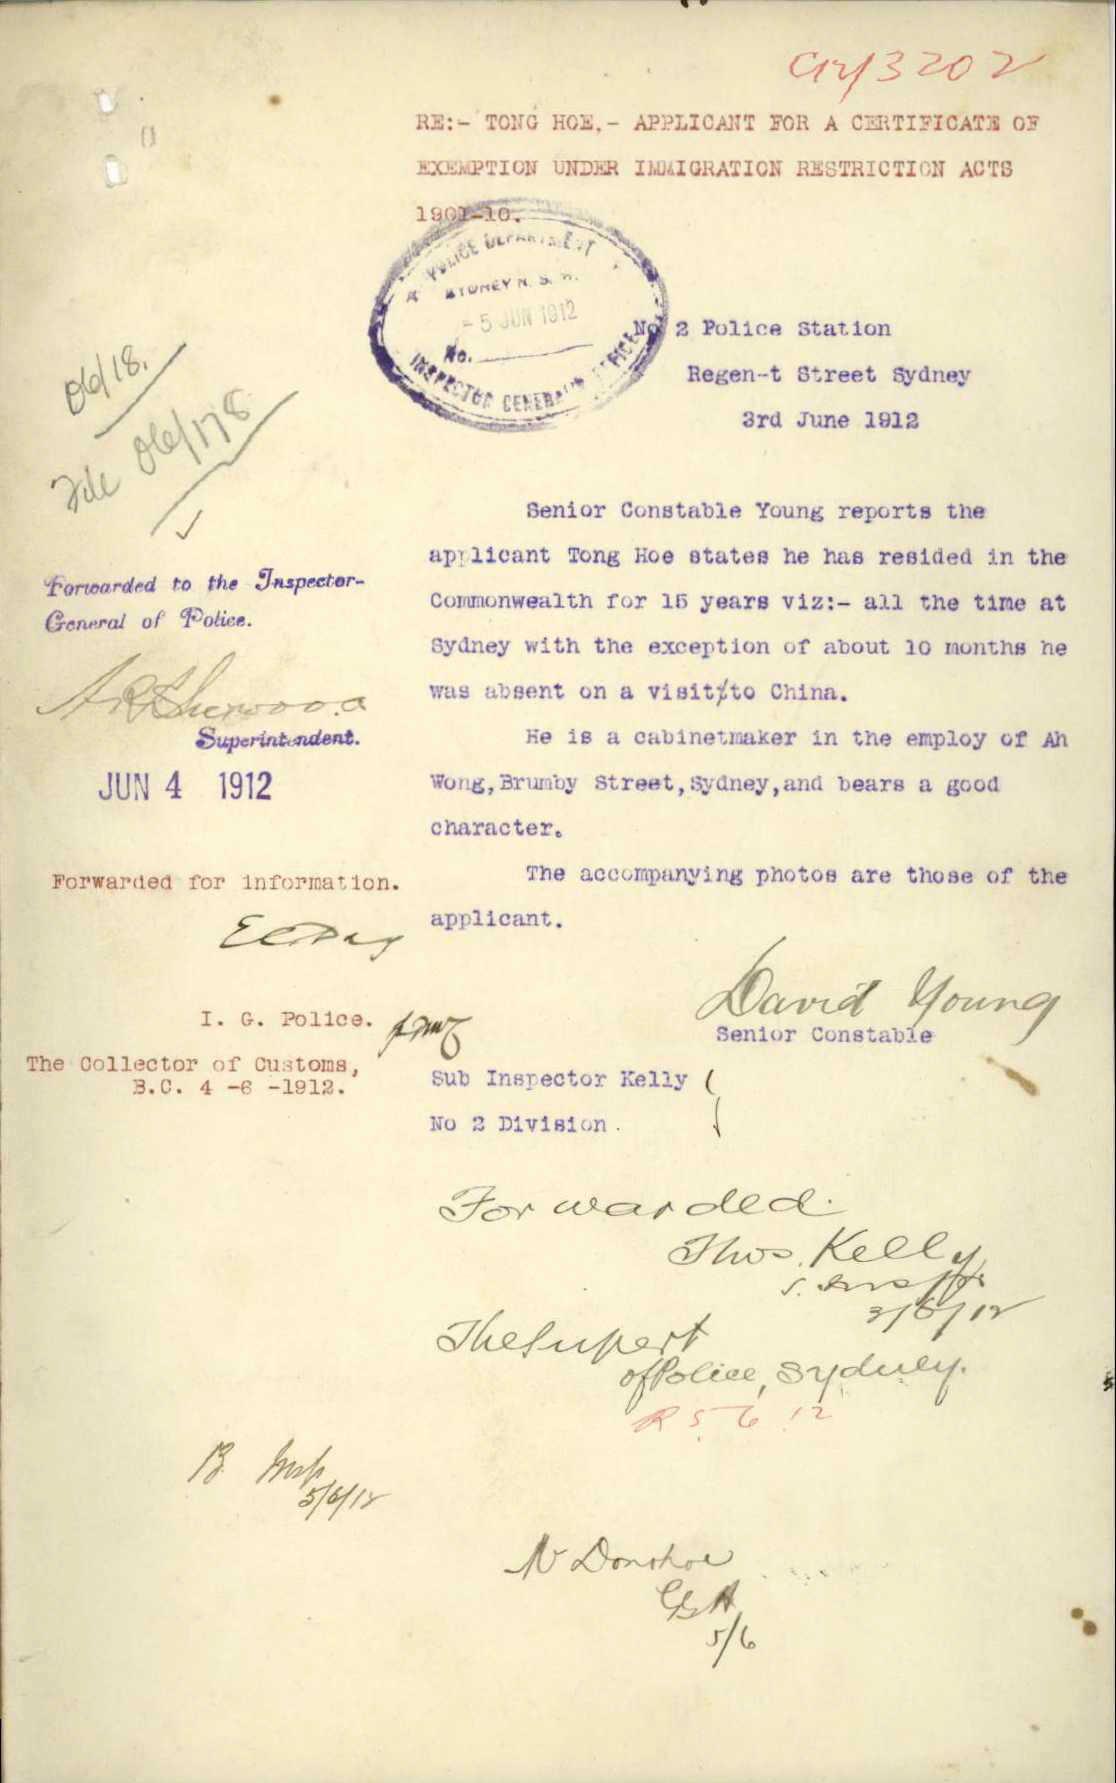 RE:- TONG HOE,- APPLICANT FOR A CERTIFICATE OF
EXEMPTION UNDER IMMIGRATION RESTRICTION ACTS
1901-10.
POLICE DEPARTMENT
SYDNEY N. S. W.
- 5 JUN 1912
No.
INSPECTOR GENERAL'S OFFICE
No 2 Police Station
Regen-t Street Sydney
3rd June 1912
06/18.
File 06/178
Senior Constable Young reports the
applicant Tong Hoe states he has resided in the
Commonwealth for 15 years viz:- all the time at
Sydney with the exception of about 10 months he
was absent on a visit to China.
He is a cabinetmaker in the employ of Ah
Wong,Brumby Street,Sydney,and bears a good
character.
The accompanying photos are those of the
applicant.
David Young
Senior Constable
Sub Inspector Kelly
No 2 Division.
Forwarded.
Thos. Kelly
3/6/12
The Supert
of Police, Sydney.
R 5. 6. 12
Forwarded to the Inspector-
General of Police.
Superintendent.
JUN 4 1912
Forwarded for information.
I. G. Police.
The Collector of Customs,
B.C. 4 -6 -1912.
5/6/12
N Donohoe
5/6